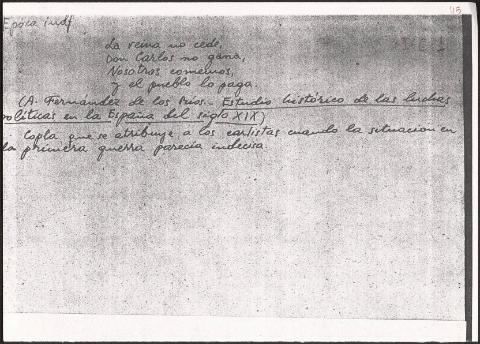 45
Epoca indf
La reina no cede,
Don Carlos no gana,
Nosotros comemos,
y el pueblo lo paga.
(A. Fernández de los Ríos.- Estudio histórico de las luchas
políticas en la España del siglo XIX)
Copla que se atribuye a los carlistas cuando la situación en
la primera guerra parecía indecisa.